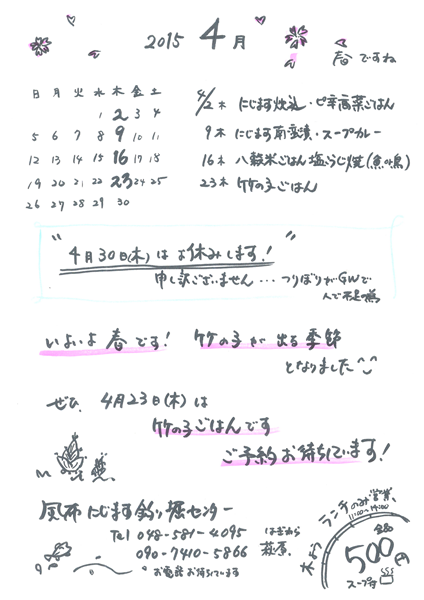 2015 4月
春ですね
日 月 火 水 木 金 土
1 2 3 4
5 6 7 8 9 10 11
12 13 14 15 16 17 18
19 20 21 22 23 24 25
26 27 28 29 30
4/2 木 にじます炊込・ピ辛高菜ごはん
9 木 にじます南蛮漬・スープカレー
16 木 八穀米ごはん 塩こうじ焼(魚or鳥)
23 木 竹の子ごはん
"4月30日(木)はお休みします!"
申し訳ございません...つりぼりがGWで
人で不足の為
いよいよ春です! 竹の子が出る季節
となりました
ぜひ、4月23日(木)は
竹の子ごはんです
ご予約お待ちしています!
風布にじます釣り堀センター
Tel 048-581-4095
090-7410-5866
はぎわら
萩原
お電話お待ちしています
ランチのみ営業
11:00~14:00
木よう
全品
500円
スープ付